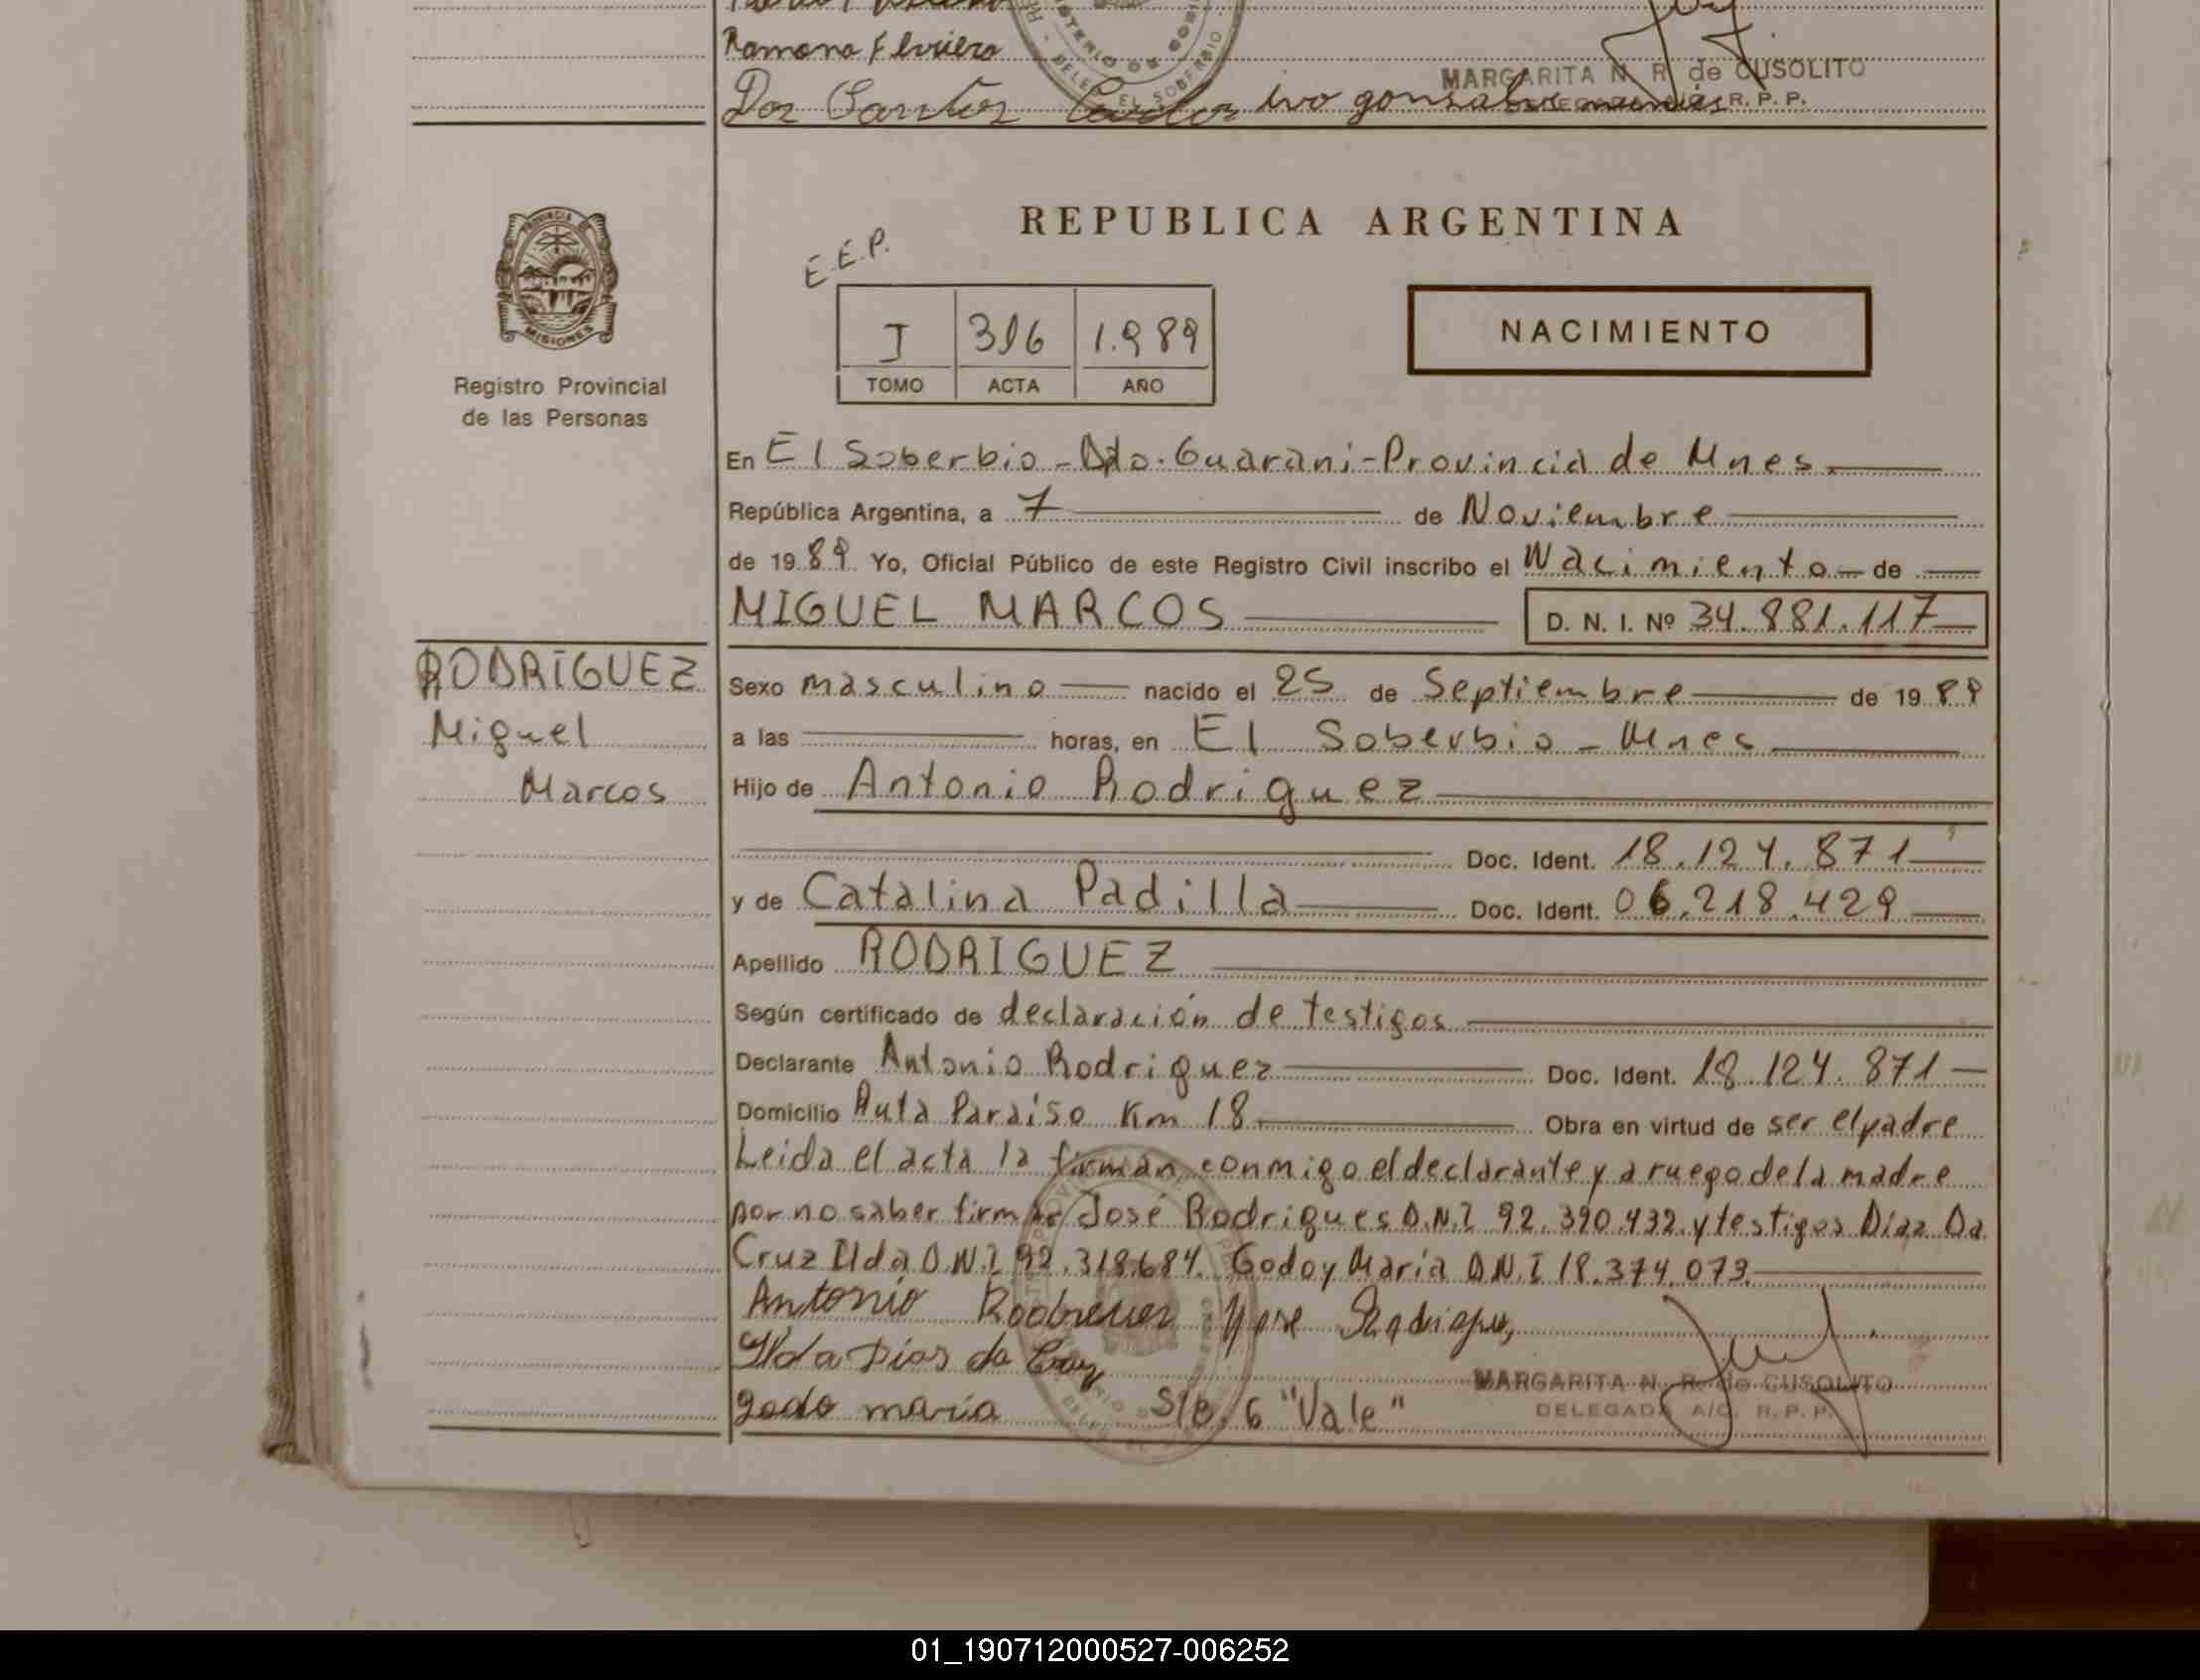 Ramona
MARGARITA N. R. de CUSOLITO
Dos Santos Ivo R. P. P.
REPUBLICA ARGENTINA
E.E.P.
PROVINCIA DE
MISIONES
Registro Provincial
de las Personas
I 316 1.989
TOMO ACTA AÑO
NACIMIENTO
En El Soberbio - Dto. Guaraní - Provincia de Mnes.
República Argentina, a 7 de Noviembre
de 19 89 Yo, Oficial Público de este Registro Civil inscribo el Nacimiento de
MIGUEL MARCOS D. N. I. Nº 34.881.117
RODRIGUEZ
Miguel
Marcos
Sexo masculino nacido el 25 de Septiembre de 19 89
a las horas, en El Soberbio - Mnes
Hijo de Antonio Rodriguez
Doc. Ident. 18.124.871
y de Catalina Padilla Doc. Ident. 06.218.429
Apellido RODRIGUEZ
Según certificado de declaración de testigos
Declarante Antonio Rodriguez Doc. Ident. 18.124.871
Domicilio Ruta Paraíso Km 18 Obra en virtud de ser el padre
Leida el acta la firman conmigo el declarante y a ruego de la madre
por no saber firmar José Rodrigues D.N.I 92.390.432 y testigos Díaz Da
Cruz Ilda D.N.I 92.318.684. Godoy María D.N.I 18.374.079.
Antonio
Ilda Dias da Cruz
godo maria S/B. 6 "Vale"
MARGARITA N. R. de CUSOLITO
DELEGADA A/C. R. P. P.
01_190712000527-006252